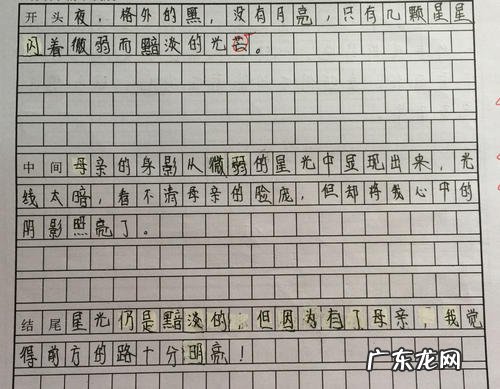 开头夜，格外的黑，没有月亮，只有几颗星星
闪着微弱而黯淡的光芒。
中间母亲的身影从微弱的星光中显现出来，光
线太暗，看不清母亲的脸庞，但却将我心中的
阴影照亮了。
结尾星光仍是黯淡的，但因为有了母亲，我觉
得前方的路十分明亮！
广东龙网